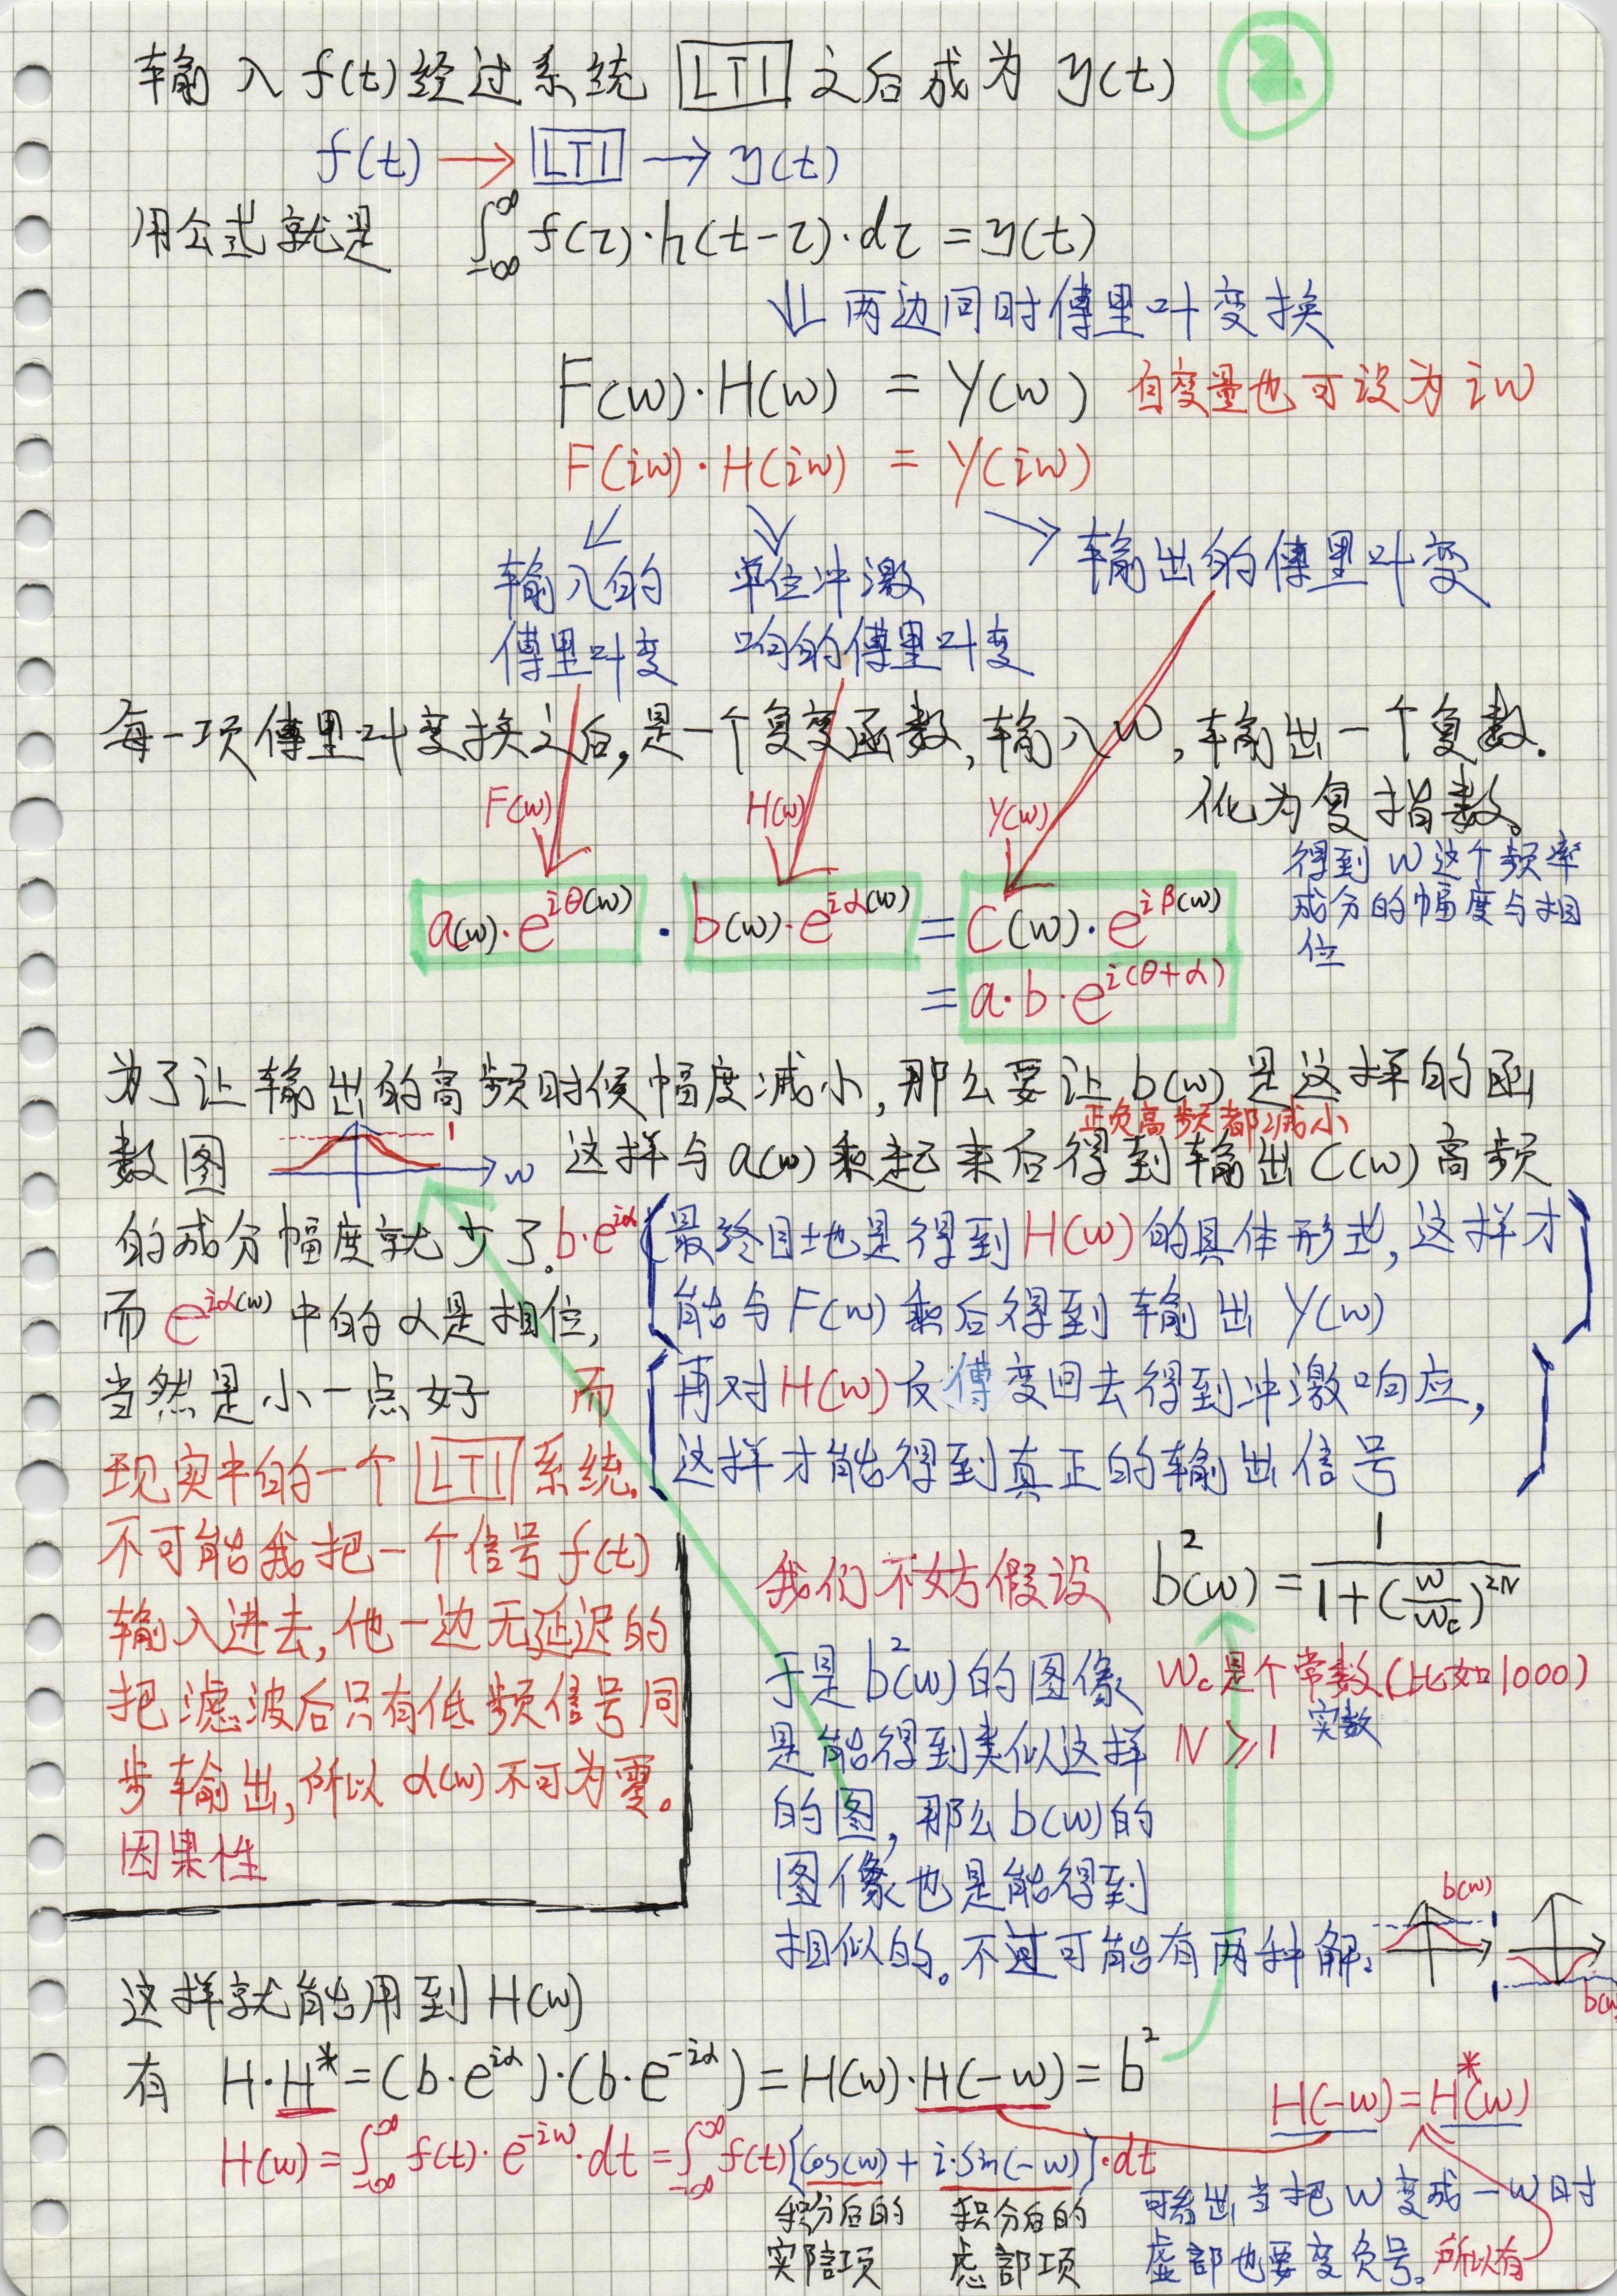 输入 f(t) 经过系统 LTI 之后成为 y(t) ②
f(t) → LTI → y(t)
用公式就是 ∫_{-∞}^{∞} f(τ)·h(t-τ)·dτ = y(t)
⇓ 两边同时傅里叶变换
F(w)·H(w) = Y(w) 自变量也可设为 iw
F(iw)·H(iw) = Y(iw)
输入的 单位冲激 → 输出的傅里叶变
傅里叶变 响的傅里叶变
每一项傅里叶变换之后,是一个复变函数,输入w,输出一个复数.
化为复指数。
F(w) H(w) Y(w)
得到 w 这个频率
成分的幅度与相
位
a(w)·e^{iθ(w)} · b(w)·e^{iα(w)} = C(w)·e^{iβ(w)}
= a·b·e^{i(θ+α)}
为了让输出的高频时候幅度减小,那么要让 b(w) 是这样的函
正负高频都减小
数图 1 →w 这样与 a(w) 乘起来后得到输出 C(w) 高频
的成分幅度就少了。 b·e^{iα} (最终目地是得到 H(w) 的具体形式,这样才
能与 F(w) 乘后得到输出 Y(w))
而 e^{iα(w)} 中的 α 是相位,
当然是小一点好 而
[再对 H(w) 反傅变回去得到冲激响应,
这样才能得到真正的输出信号]
现实中的一个 LTI 系统.
不可能我把一个信号 f(t)
输入进去,他一边无延迟的
把滤波后只有低频信号同
步输出,所以 α(w) 不可为零。
因果性
我们不妨假设 b²(w) = 1/(1+(w/w_c)^{2N})
于是 b²(w) 的图像 w_c 是个常数(比如1000)
实数
是能得到类似这样 N ≥ 1
的图,那么 b(w) 的
图像也是能得到
相似的。不过可能有两种解: b(w) b(w
这样就能用到 H(w)
有 H·H* = (b·e^{iα})·(b·e^{-iα}) = H(w)·H(-w) = b²
H(-w) = H*(w)
H(w) = ∫_{-∞}^{∞} f(t)·e^{-iw}·dt = ∫_{-∞}^{∞} f(t)[cos(w) + i·sin(-w)]·dt
积分后的 积分后的
实部项 虑部项
可看出当把 w 变成 -w 时
虚部也要变负号。所以有